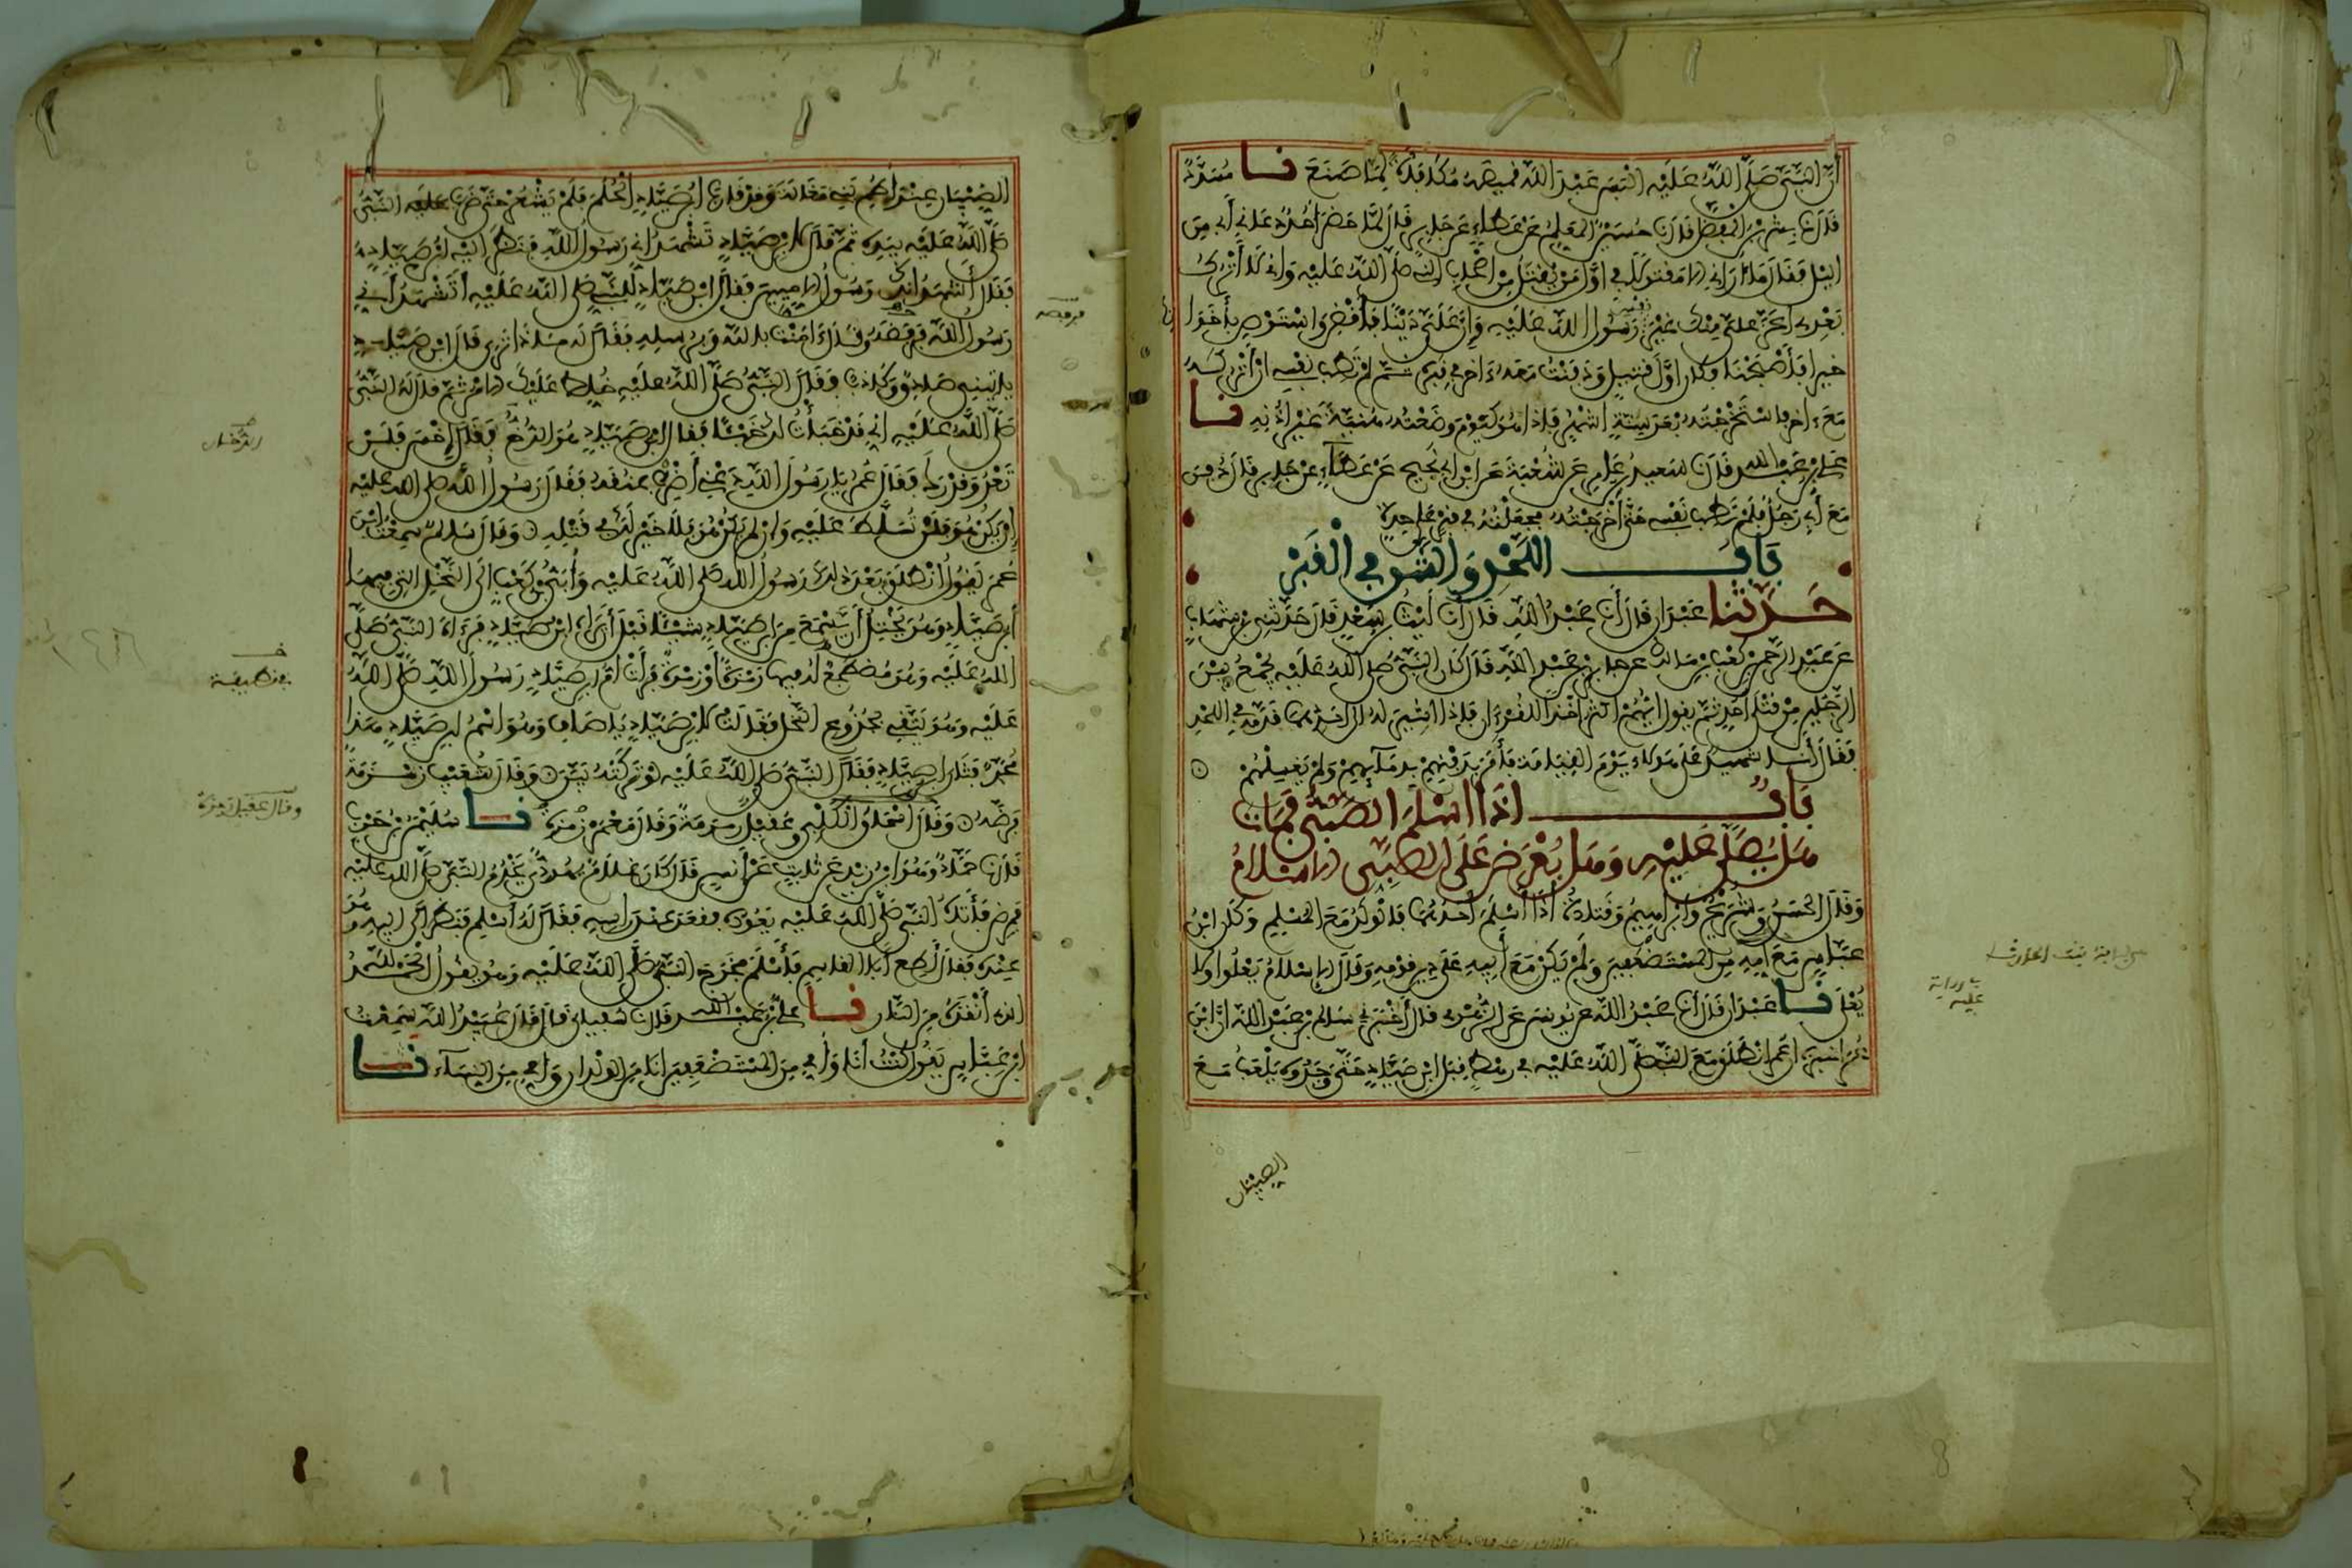 أن النبي صلى الله عليه ألبس عبد الله قميصه مكافأة لما صنع نا مسدد
قال نا بشر بن المفضل قال نا حسين المعلم عن عطاء عن جابر قال لما حضر أحد دعاني أبي من
الليل فقال ما أراني إلا مقتولا في أول من يقتل من أصحاب النبي صلى الله عليه وإني لا أترك
بعدي أعز علي منك غير نفس رسول الله عليه وإن علي دينا فاقض واستوص بأخواتك
خيرا فأصبحنا وكان أول قتيل ودفنت معه ءاخر في قبره ثم لم تطب نفسي أن أتركه
مع ءاخر فاستخرجته بعد ستة أشهر فإذا هو كيوم وضعته هنية غير أذنه نا
علي بن عبد الله قال نا سعيد بن عامر عن شعبة عن ابن أبي نجيح عن عطاء عن جابر قال دفن
مع أبي رجل فلم تطب نفسي حتى أخرجته فجعلته في قبر على حدة
باب اللحد والشق في القبر
حدثنا عبدان قال أنا عبد الله قال أنا ليث بن سعد قال حدثني ابن شهاب
عن عبد الرحمن بن كعب بن مالك عن جابر بن عبد الله قال كان النبي صلى الله عليه يجمع بين
الرجلين من قتلى أحد ثم يقول أيهم أكثر أخذا للقرءان فإذا أشير له إلى أحدهما قدمه في اللحد
فقال أنا شهيد على هؤلاء يوم القيامة فأمر بدفنهم بدمائهم ولم يغسلهم
باب إذا أسلم الصبي فمات
هل يصلى عليه وهل يعرض على الصبي الإسلام
وقال الحسن وشريح وإبراهيم وقتادة إذا أسلم أحدهما فالولد مع المسلم وكان ابن
عباس مع أمه من المستضعفين ولم يكن مع أبيه على دين قومه وقال الإسلام يعلو ولا
يعلى نا عبدان قال أنا عبد الله عن يونس عن الزهري قال أخبرني سالم بن عبد الله أن ابن
عمر أخبره أن عمر انطلق مع النبي صلى الله عليه في رهط قبل ابن صياد حتى وجدوه يلعب مع
الصبيان
لبابة بنت الحارث
الصبيان عند أطم بني مغالة وقد قارب ابن صياد الحلم فلم يشعر حتى ضرب عليه النبي
صلى الله عليه بيده ثم قال لابن صياد تشهد أني رسول الله فنظر إليه ابن صياد
فقال أشهد أنك رسول الأميين فقال ابن صياد للنبي صلى الله عليه أتشهد أني
رسول الله فرفضه وقال ءامنت بالله وبرسله فقال له ماذا ترى قال ابن صياد
يأتيني صادق وكاذب فقال النبي صلى الله عليه خلط عليك الأمر ثم قال له النبي
صلى الله عليه إني قد خبأت لك خبئا فقال ابن صياد هو الدخ فقال اخس فلن
تعدو قدرك فقال عمر يا رسول الله دعني أضرب عنقه فقال رسول الله صلى الله عليه
إن يكن هو فلن تسلط عليه وإن لم يكن هو فلا خير لك في قتله وقال سالم سمعت ابن
عمر يقول انطلق بعد ذلك رسول الله صلى الله عليه وأبي بن كعب إلى النخل التي فيها
ابن صياد وهو يختل أن يسمع من ابن صياد شيئا قبل أن يراه ابن صياد فرءاه النبي صلى
الله عليه وهو مضطجع له فيها رمزة أو زمرة فرأت أم ابن صياد رسول الله صلى الله
عليه وهو يتقي بجذوع النخل فقالت لابن صياد يا صاف وهو اسم ابن صياد هذا
محمد فثار ابن صياد فقال النبي صلى الله عليه لو تركته بين وقال شعيب زمزمة
فرضه وقال إسحاق الكلبي وعقيل رمرمة وقال معمر رمزة نا سليمان بن حرب
قال نا حماد وهو ابن زيد عن ثابت عن أنس قال كان غلام يهودي يخدم النبي صلى الله عليه
فمرض فأتاه النبي صلى الله عليه يعوده فقعد عند رأسه فقال له أسلم فنظر إلى أبيه وهو
عنده فقال أطع أبا القاسم فأسلم فخرج النبي صلى الله عليه وهو يقول الحمد لله
الذي أنقذه من النار نا علي بن عبد الله قال نا سفيان قال قال عبيد الله سمعت
ابن عباس يقول كنت أنا وأمي من المستضعفين أنا من الولدان وأمي من النساء نا
قطيفة